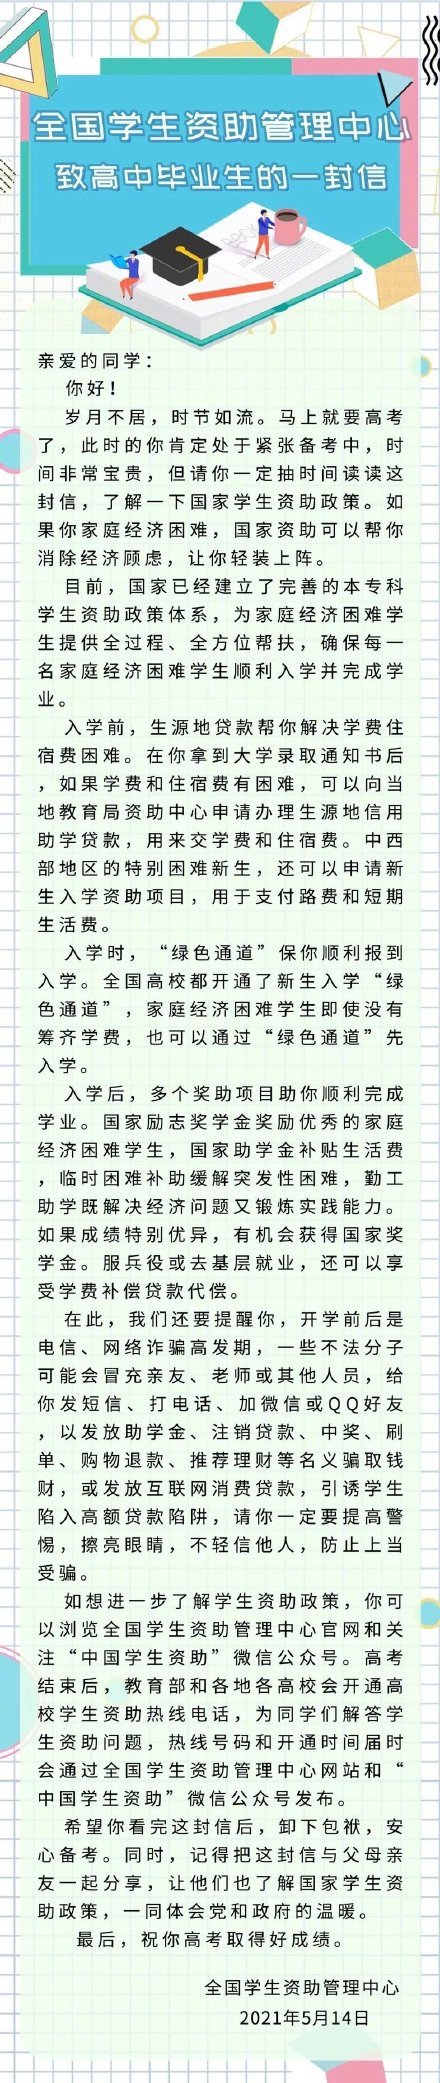 全国学生资助管理中心
致高中毕业生的一封信
亲爱的同学：
你好！
岁月不居，时节如流。马上就要高考
了，此时的你肯定处于紧张备考中，时
间非常宝贵，但请你一定抽时间读读这
封信，了解一下国家学生资助政策。如
果你家庭经济困难，国家资助可以帮你
消除经济顾虑，让你轻装上阵。
目前，国家已经建立了完善的本专科
学生资助政策体系，为家庭经济困难学
生提供全过程、全方位帮扶，确保每一
名家庭经济困难学生顺利入学并完成学
业。
入学前，生源地贷款帮你解决学费住
宿费困难。在你拿到大学录取通知书后
，如果学费和住宿费有困难，可以向当
地教育局资助中心申请办理生源地信用
助学贷款，用来交学费和住宿费。中西
部地区的特别困难新生，还可以申请新
生入学资助项目，用于支付路费和短期
生活费。
入学时，“绿色通道”保你顺利报到
入学。全国高校都开通了新生入学“绿
色通道”，家庭经济困难学生即使没有
筹齐学费，也可以通过“绿色通道”先
入学。
入学后，多个奖助项目助你顺利完成
学业。国家励志奖学金奖励优秀的家庭
经济困难学生，国家助学金补贴生活费
，临时困难补助缓解突发性困难，勤工
助学既解决经济问题又锻炼实践能力。
如果成绩特别优异，有机会获得国家奖
学金。服兵役或去基层就业，还可以享
受学费补偿贷款代偿。
在此，我们还要提醒你，开学前后是
电信、网络诈骗高发期，一些不法分子
可能会冒充亲友、老师或其他人员，给
你发短信、打电话、加微信或QQ好友
，以发放助学金、注销贷款、中奖、刷
单、购物退款、推荐理财等名义骗取钱
财，或发放互联网消费贷款，引诱学生
陷入高额贷款陷阱，请你一定要提高警
惕，擦亮眼睛，不轻信他人，防止上当
受骗。
如想进一步了解学生资助政策，你可
以浏览全国学生资助管理中心官网和关
注“中国学生资助”微信公众号。高考
结束后，教育部和各地各高校会开通高
校学生资助热线电话，为同学们解答学
生资助问题，热线号码和开通时间届时
会通过全国学生资助管理中心网站和“
中国学生资助”微信公众号发布。
希望你看完这封信后，卸下包袱，安
心备考。同时，记得把这封信与父母亲
友一起分享，让他们也了解国家学生资
助政策，一同体会党和政府的温暖。
最后，祝你高考取得好成绩。
全国学生资助管理中心
2021年5月14日